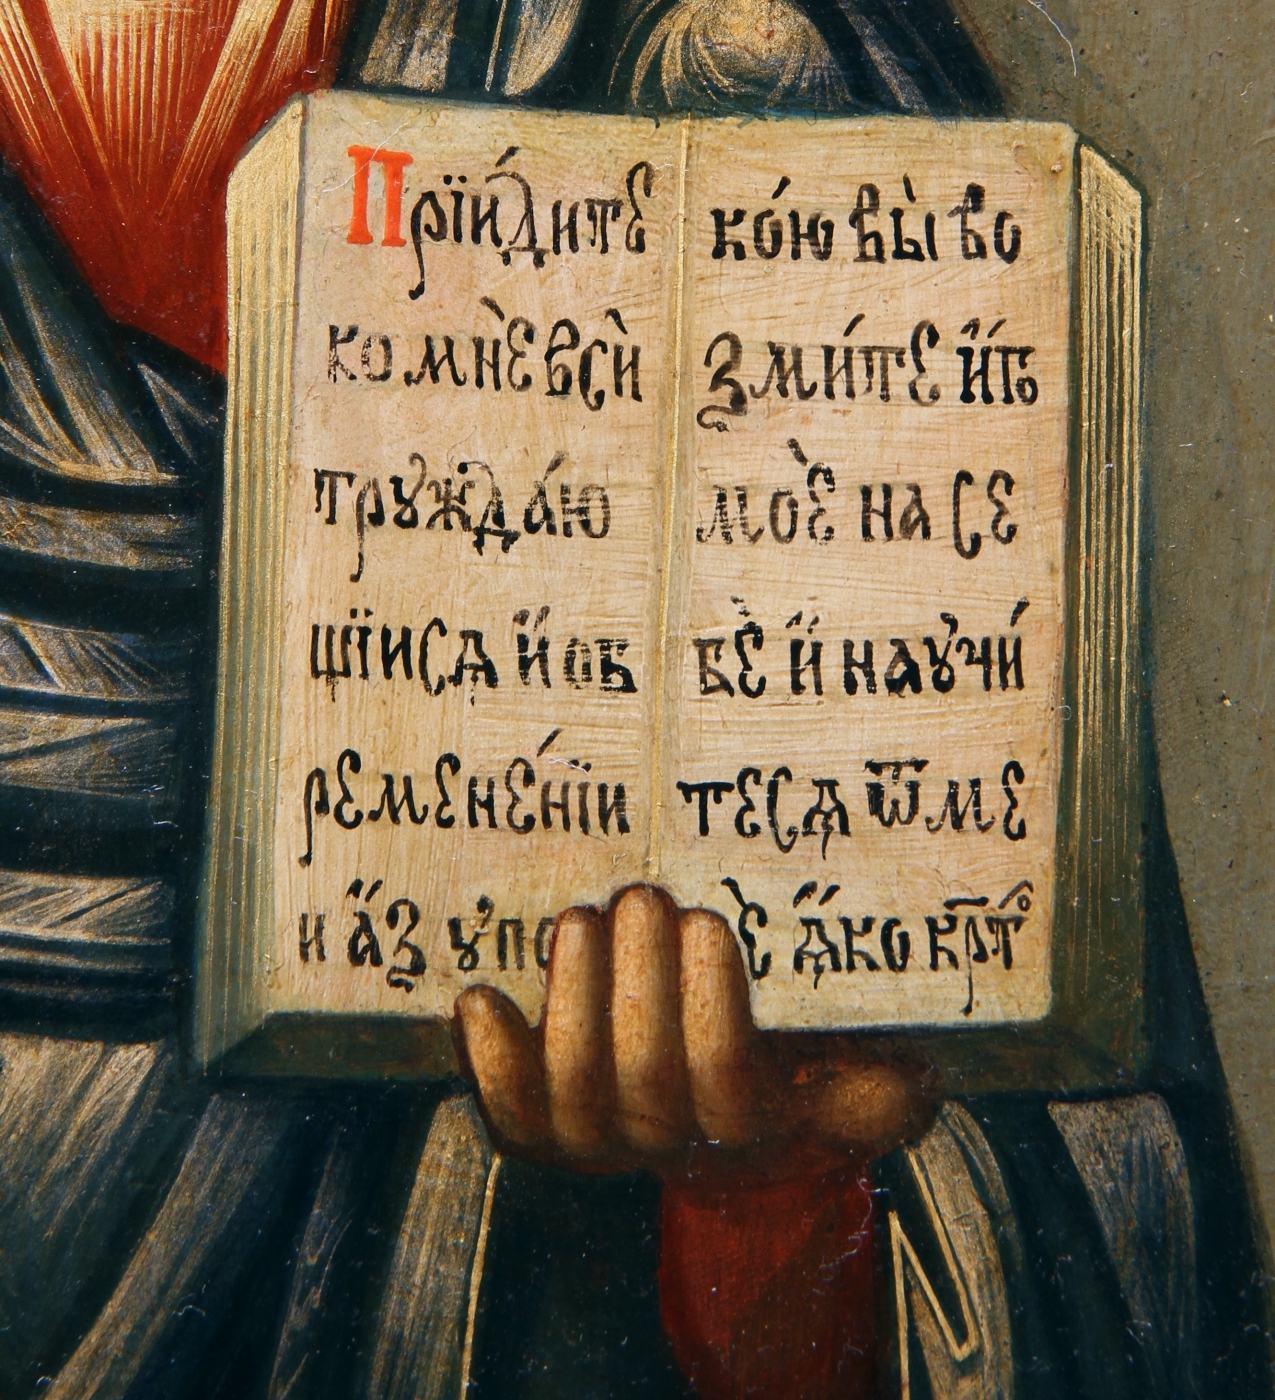 Прїи́дите
ко мнѐ всѝ
тружда́ю
щїися и҆́ об
ремене́нїи
и а҆́з упо
ко́ю вы̀ во
зми́те и҆́го
моѐ на се
бѐ и҆́ научи́
теся ѿ ме
ѐ я҆́ко кр҃то